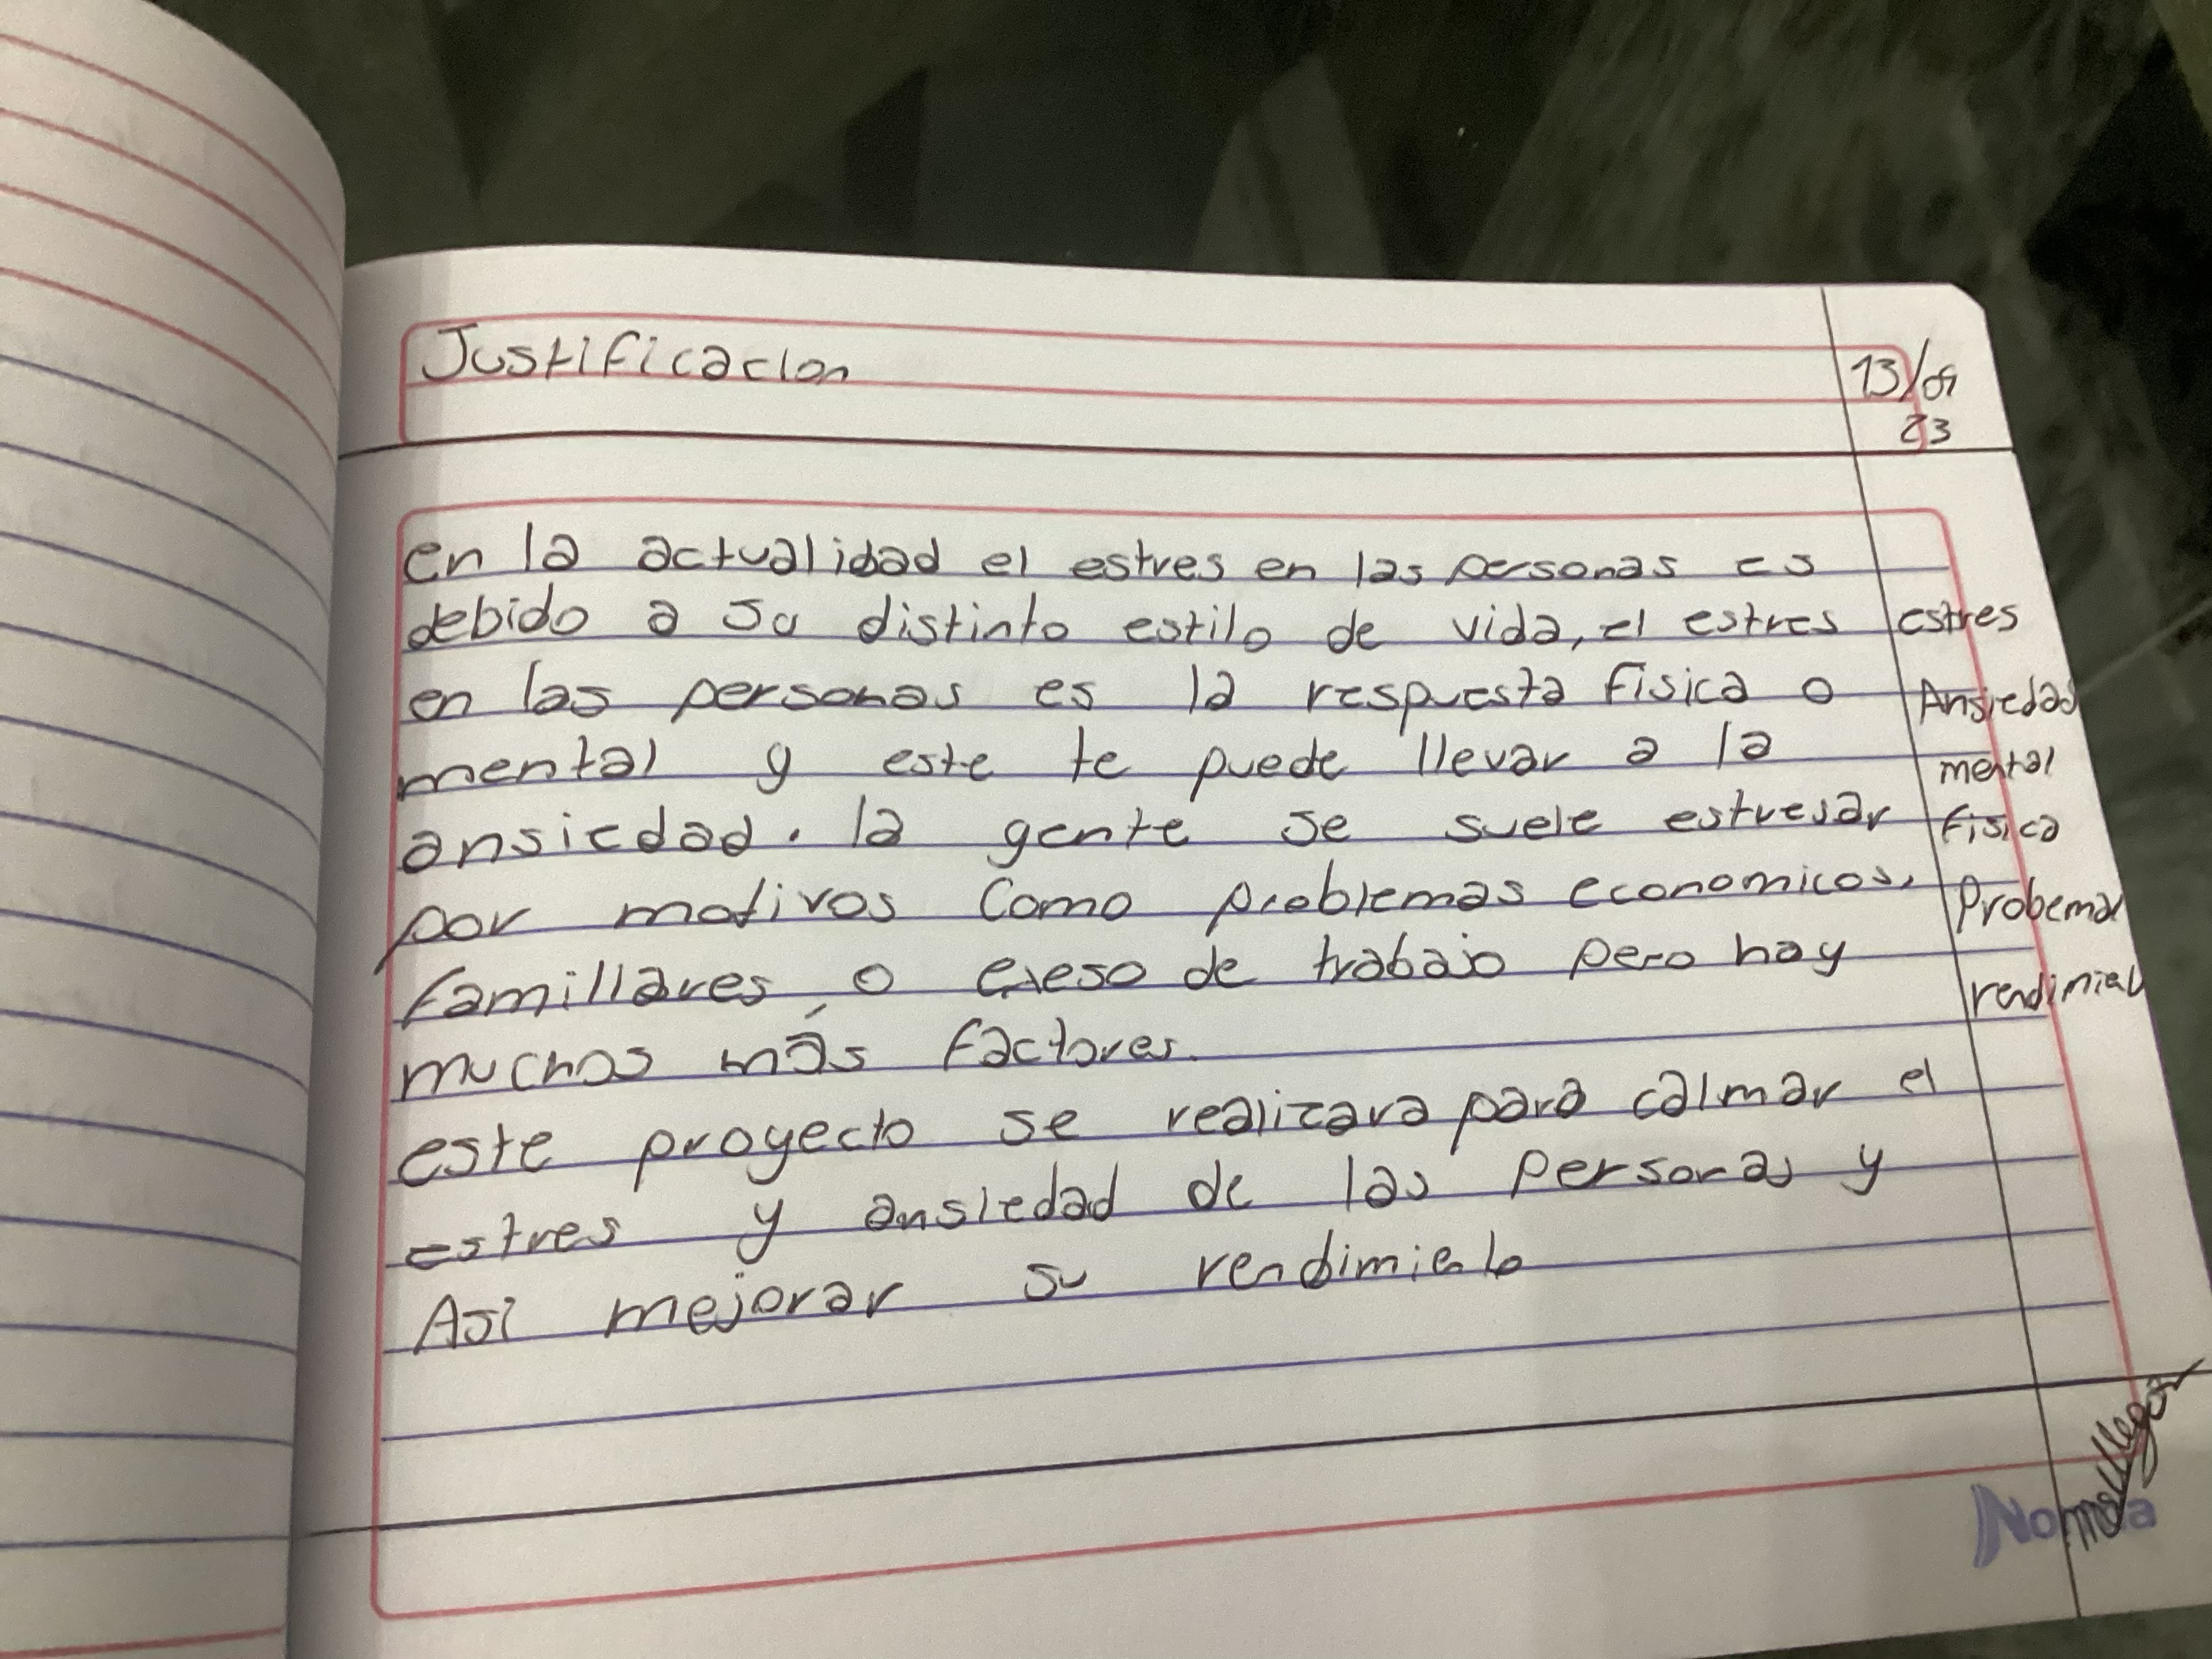 Justificacion
13/09
23
en la actualidad el estres en las personas es
debido a su distinto estilo de vida, el estres
en las personas es la respuesta fisica o
mental y este te puede llevar a la
ansiedad. la gente se suele estresar
por motivos como problemas economicos,
familiares o exeso de trabajo pero hay
muchos más factores.
este proyecto se realizara para calmar el
estres y ansiedad de las personas y
Asi mejorar su rendimiento
estres
Ansiedad
mental
fisica
Probemas
Norma